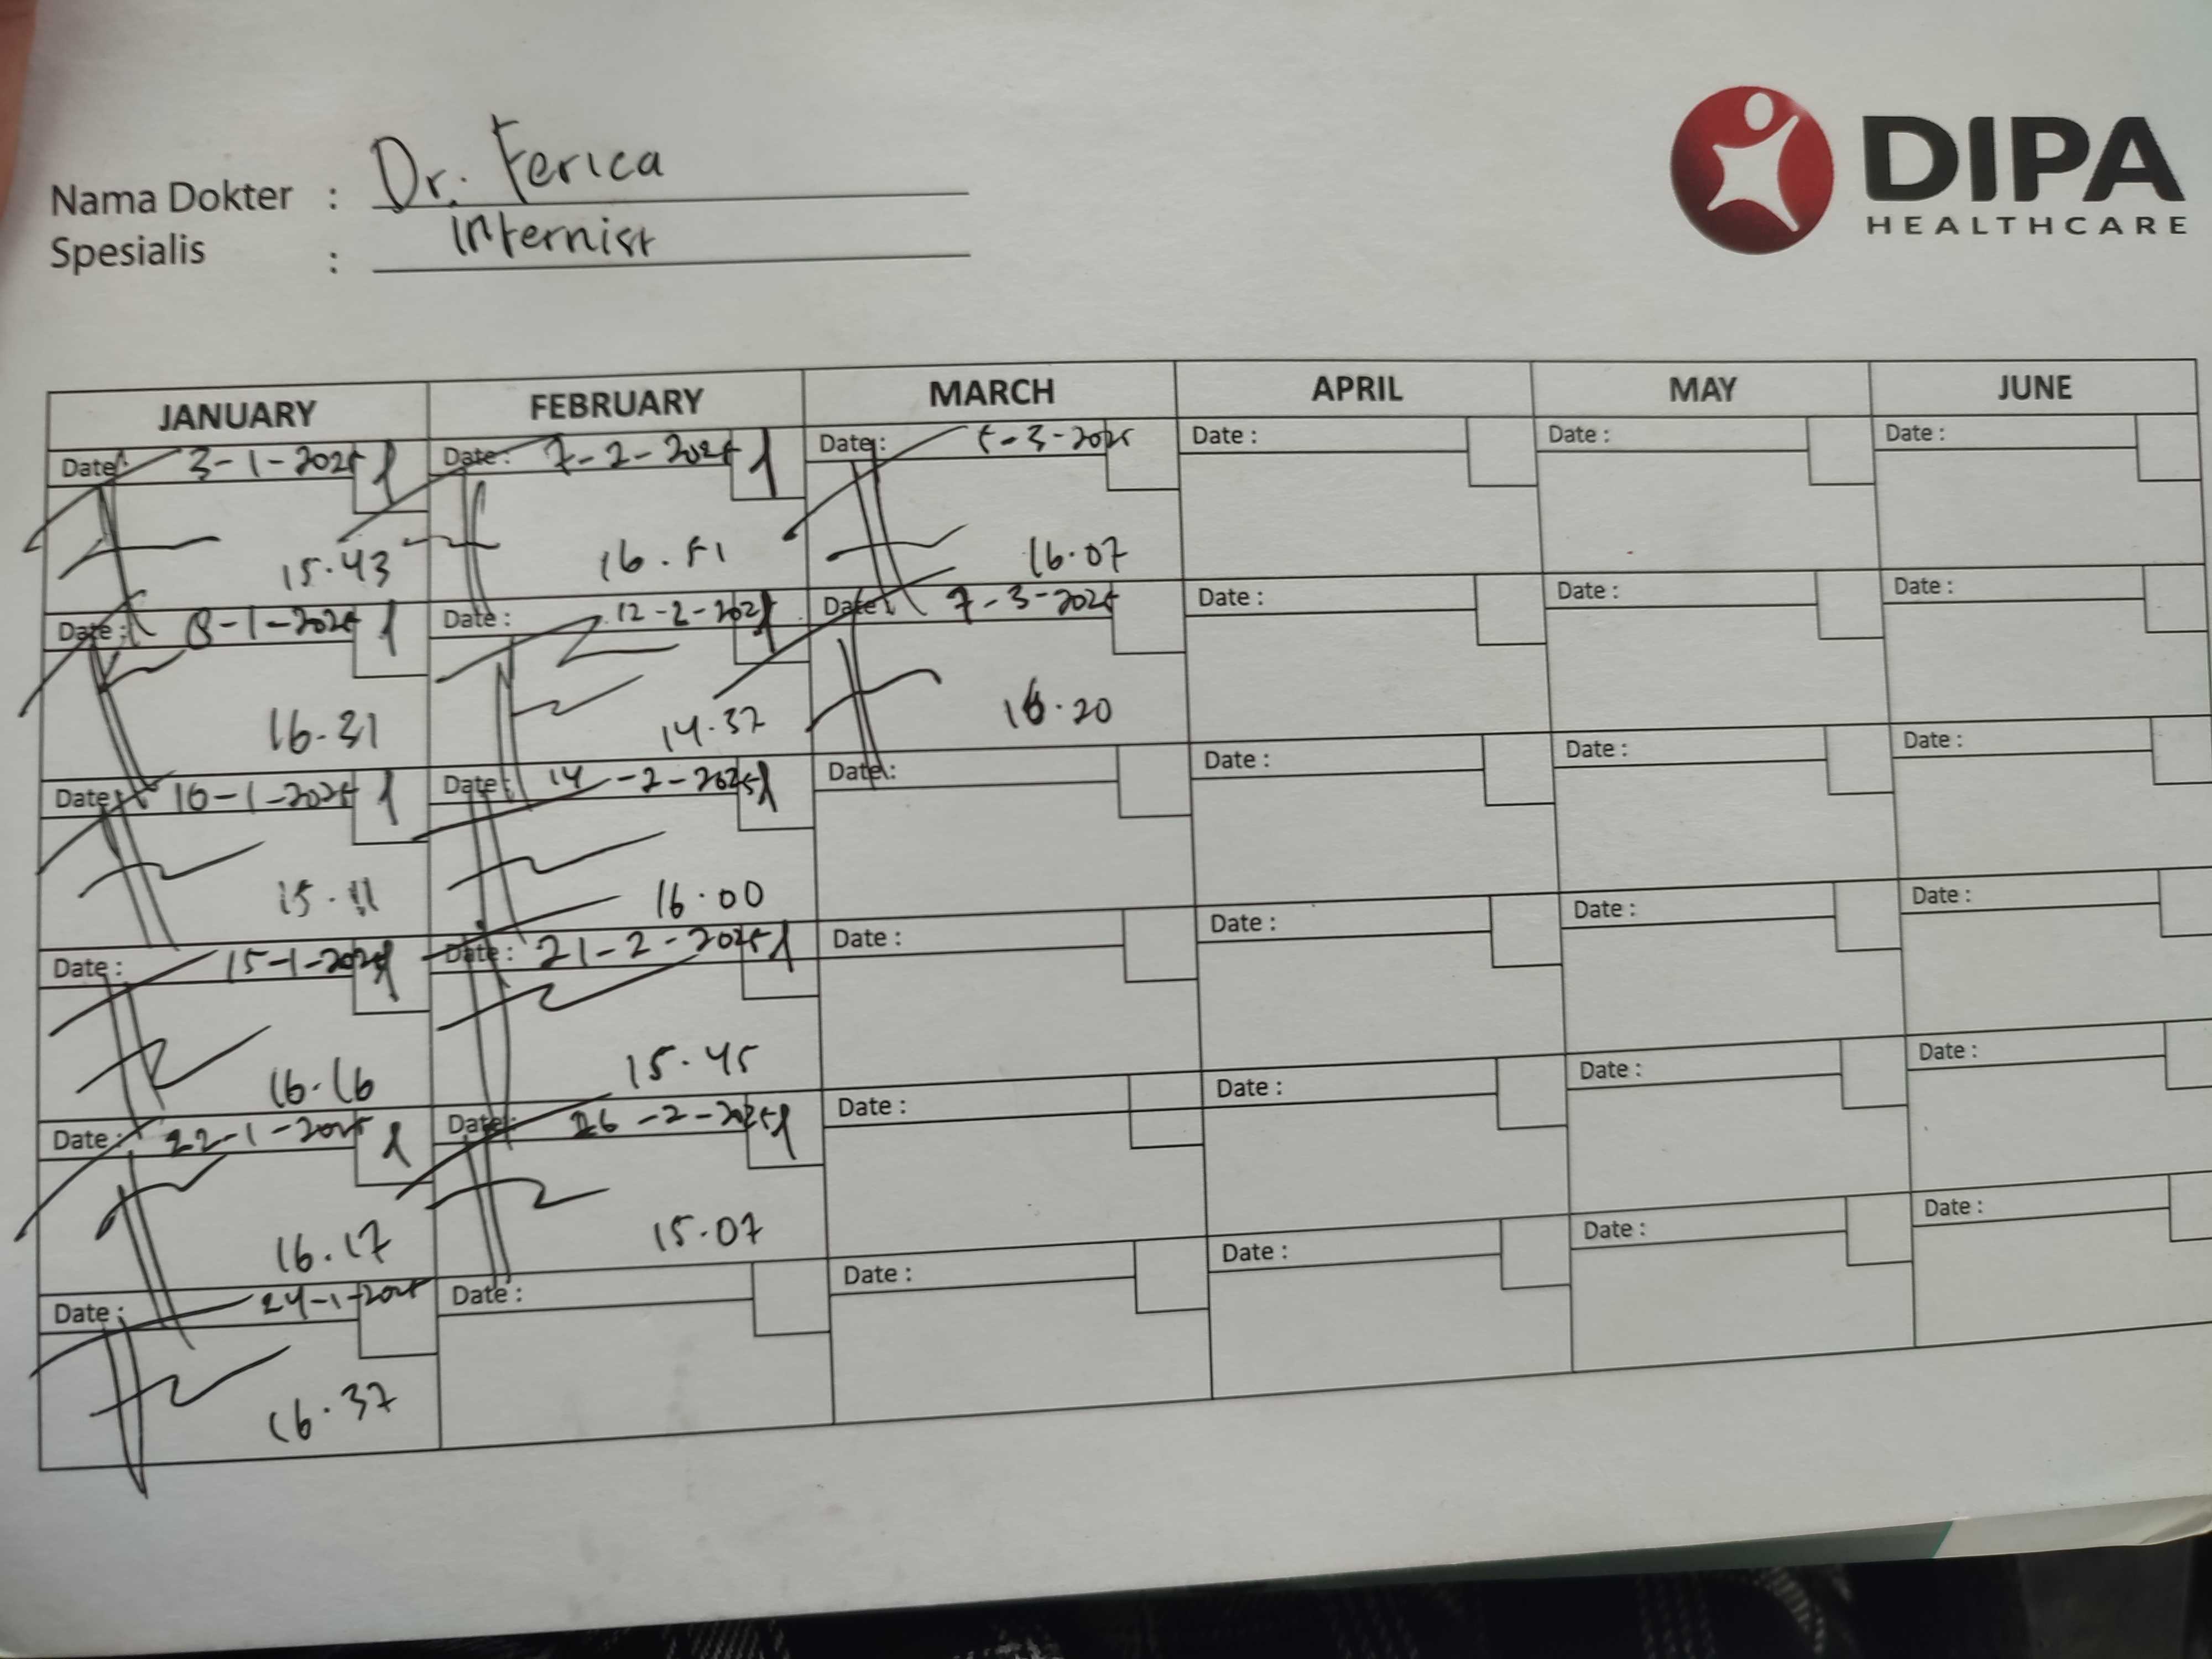 DIPA
HEALTHCARE
Nama Dokter : Dr. Ferica
Spesialis : Internist
JANUARY FEBRUARY MARCH APRIL MAY JUNE
Date : 3-1-2025 Date : 7-2-2025 Date : 5-3-2025 Date : Date : Date :
15.43 16.51 16.07
Date : 8-1-2025 Date : 12-2-2025 Date : 7-3-2025 Date : Date : Date :
16.31 14.37 16.20
Date : 10-1-2025 Date : 14-2-2025 Date : Date : Date : Date :
15.11 16.00
Date : 15-1-2025 Date : 21-2-2025 Date : Date : Date : Date :
16.16 15.45
Date : 22-1-2025 Date : 26-2-2025 Date : Date : Date : Date :
16.17 15.07
Date : 24-1-2025 Date : Date : Date : Date : Date :
16.37